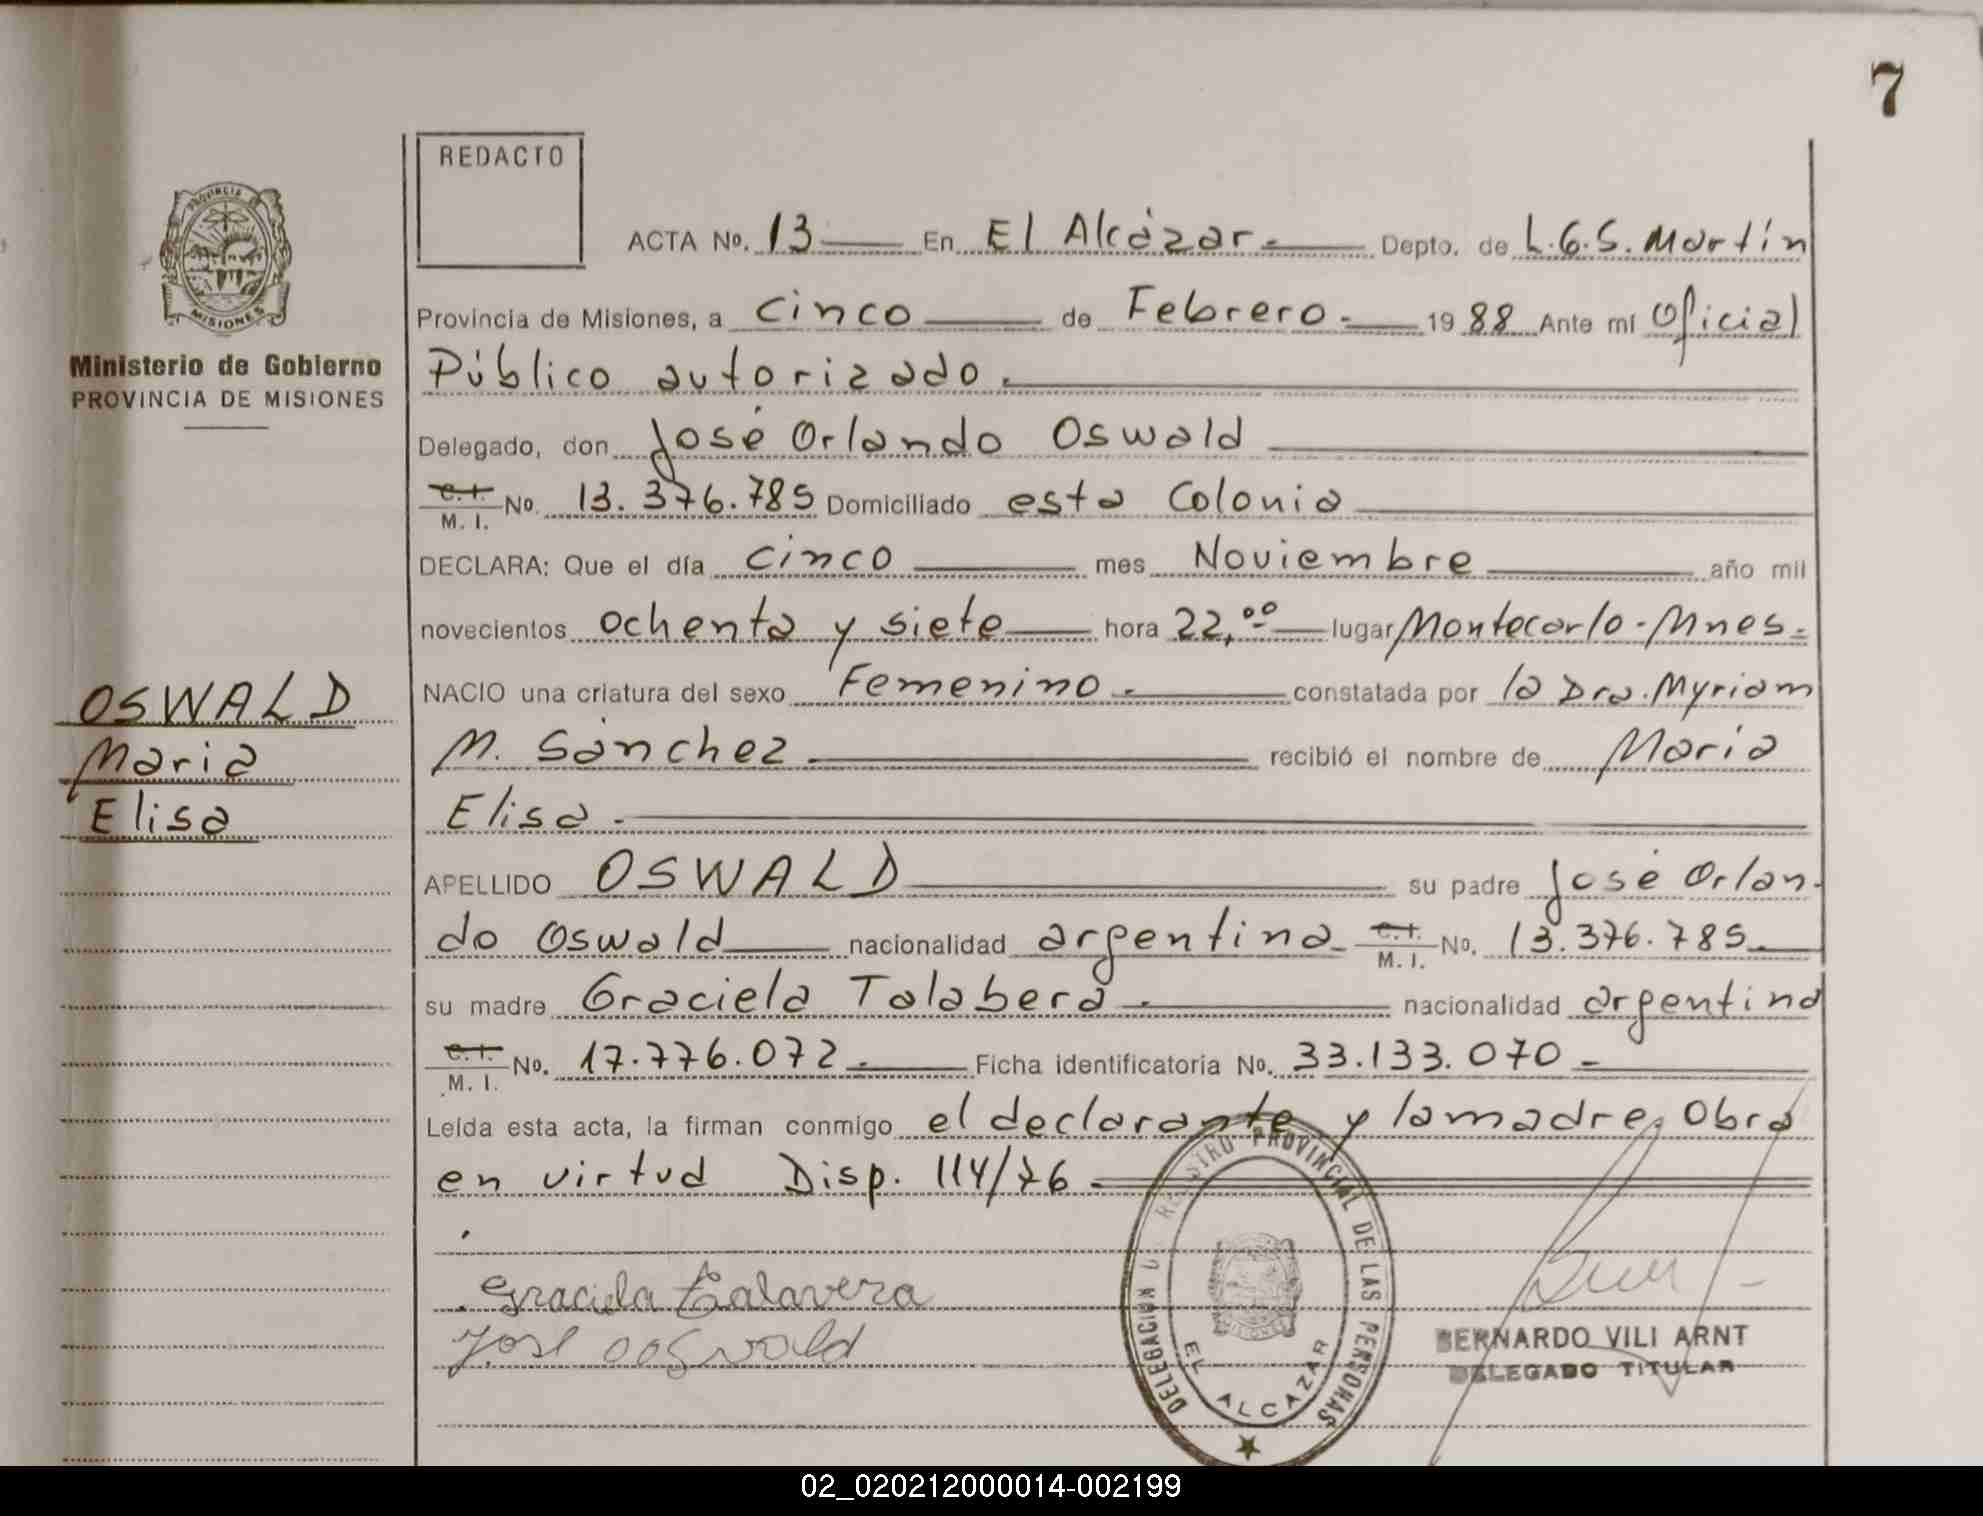 7
REDACTO
PROVINCIA
MISIONES
Ministerio de Gobierno
PROVINCIA DE MISIONES
OSWALD
Maria
Elisa
ACTA No. 13 En El Alcázar.- Depto. de L.G.S. Martín
Provincia de Misiones, a cinco de Febrero.- 19 88 Ante mí Oficial
Público autorizado.-
Delegado, don José Orlando Oswald
C.I. M. I. No. 13.376.785 Domiciliado esta Colonia
DECLARA: Que el día cinco mes Noviembre año mil
novecientos ochenta y siete hora 22,00 lugar Montecarlo-Mnes.-
NACIO una criatura del sexo Femenino.- constatada por la Dra. Myriam
M. Sánchez recibió el nombre de María
Elisa.-
APELLIDO OSWALD su padre José Orlan-
do Oswald nacionalidad argentina C.I. M. I. No. 13.376.785.-
su madre Graciela Talabera.- nacionalidad argentina
C.I. M. I. No. 17.776.072.- Ficha identificatoria No. 33.133.070-
Leída esta acta, la firman conmigo el declarante y la madre. Obra
en virtud Disp. 114/76.-
Graciela Talavera
José O Oswald
DELEGACION REGISTRO PROVINCIAL DE LAS PERSONAS
MISIONES
EL ALCAZAR
BERNARDO VILI ARNT
DELEGADO TITULAR
02_020212000014-002199